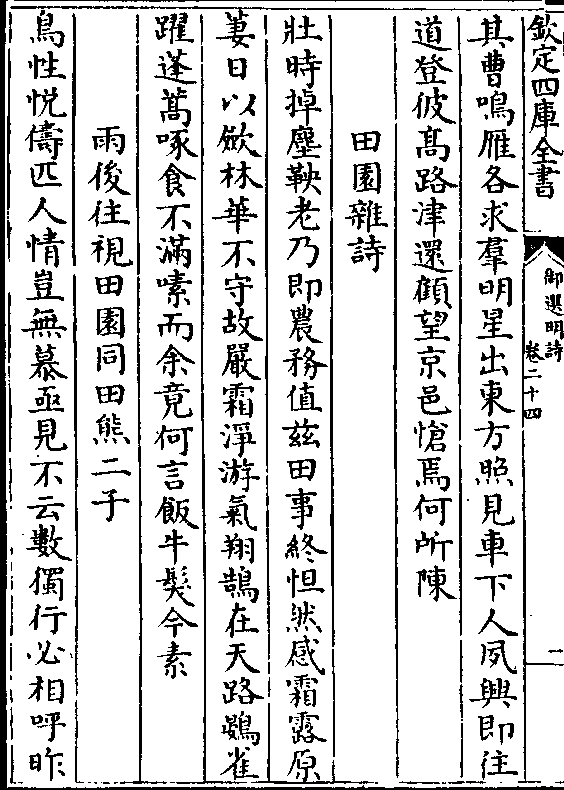 欽定四庫全書
御選明詩
卷二十四
二
其曹鳴雁各求羣明星出東方照見車下人夙興即往
道登彼髙路津還顧望京邑愴焉何所陳
田園雜詩
壯時掉塵鞅老乃即農務值兹田事終怛然感霜露原
萋日以歛林華不守故嚴霜淨游氣翔鵠在天路鷃雀
躍蓬蒿啄食不滿嗉而余竟何言飯牛髮今素
雨後往視田園同田熊二子
鳥性悅儔匹人情豈無慕亟見不云數獨行必相呼昨